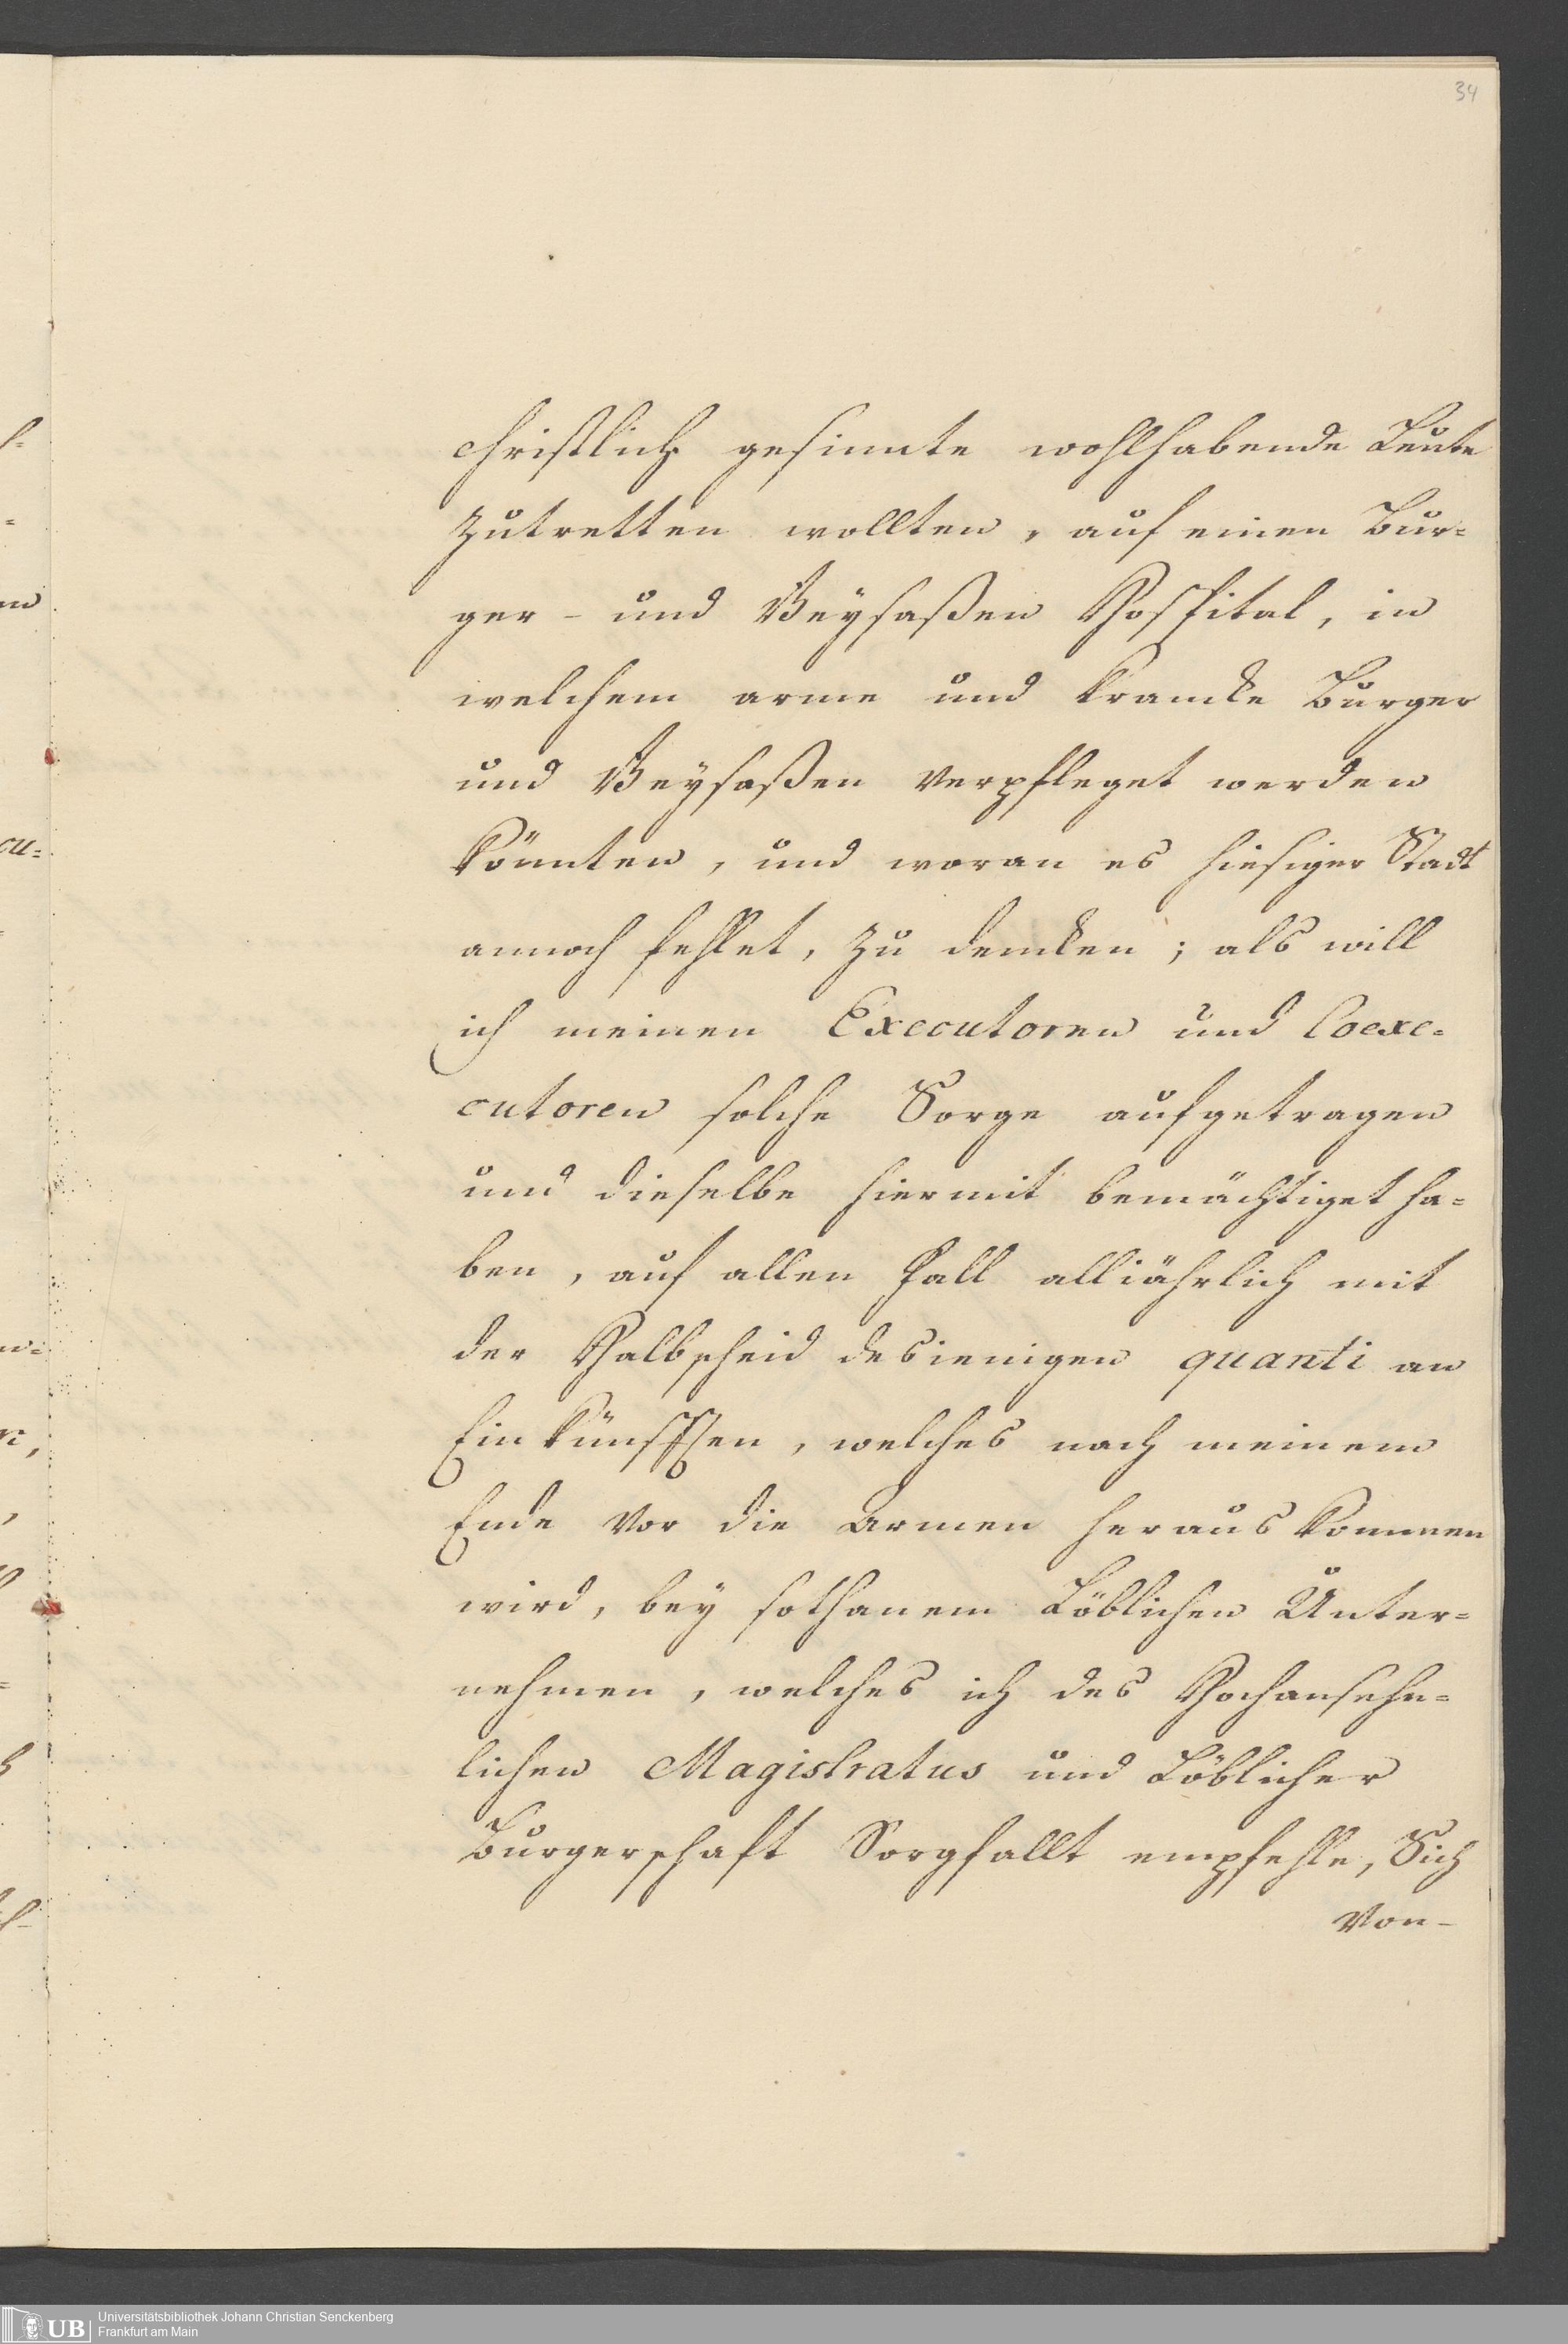 34
christlich gesinnte wohlhabende Leute
zutretten wollten, auf einen Bur-
ger- und Beysaßen Hospital, in
welchem arme und krancke Burger
und Beysaßen verpfleget werden
könnten, und woran es hiesiger Stadt
annoch fehlet, zu dencken; als will
ich meinen Executoren und Coexe-
cutoren solche Sorge aufgetragen
und dieselbe hiermit bemächtiget ha-
ben, auf allen Fall alliährlich mit
der Halbscheid desienigen quanti an
Einkünfften, welches nach meinem
Ende vor die Armen heraus kommen
wird, bey sothanem Löblichen Unter-
nehmen, welches ich des Hochansehn-
lichen Magistratus und Löblicher
Burgerschafft Sorgfallt empfehle, Sich
von-
UB
Universitätsbibliothek Johann Christian Senckenberg
Frankfurt am Main